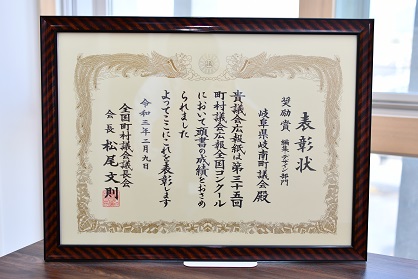 表彰状
奨励賞 編集・デザイン部門
岐阜県岐南町議会殿
貴議会広報紙は第三十五回
町村議会広報全国コンクール
において頭書の成績をおさめ
られました
よってここにこれを表彰します
令和三年二月九日
全国町村議会議長会
会長 松尾文則